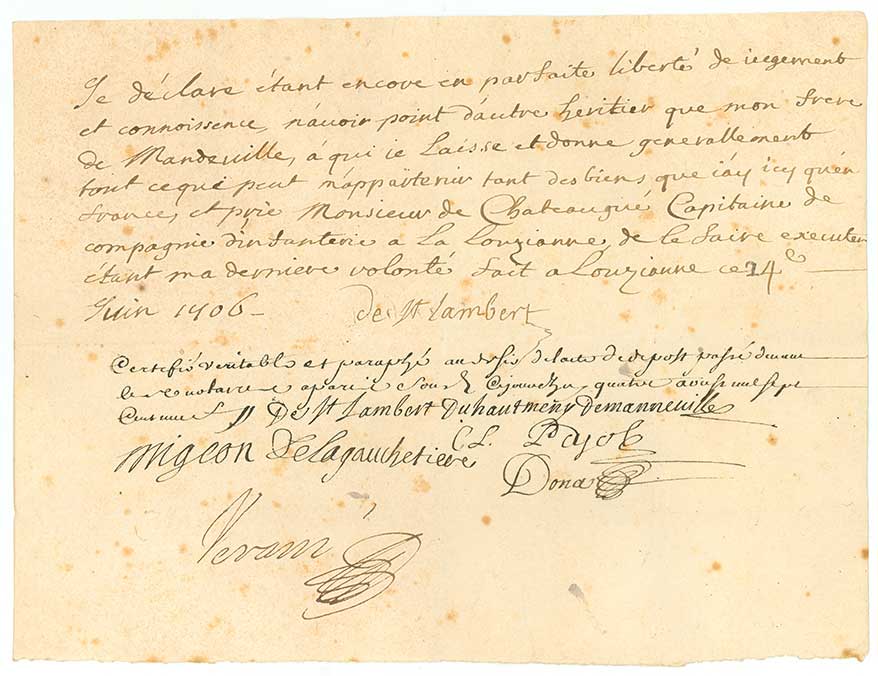 Je déclare étant encore en parfaite liberté de iugement
et connoissence, n'auoir point d'autre heritier que mon frere
de Mandeuille, á qui ie Laisse et donne generallement
tout ce qui peut m'appartenir tant des biens que i'ay icy qu'en
france, et prie Monsieur de Chateaugué Capitaine de
compagnie d'infanterie a La Louzianne, de le faire executer
étant ma derniere volonté fait a Louzianne ce 14e
Juin 1706
de St Lambert
Certefié veritable et paraphé au desir de lacte de depost passé devant
les notaires a paris Ce jourdhuy quatre aoust mil sept
Cent neuf De St Lambert Duhautmeny Demanneuille
migeon Delagauchetiere C.L. Payol
Dona
Verani